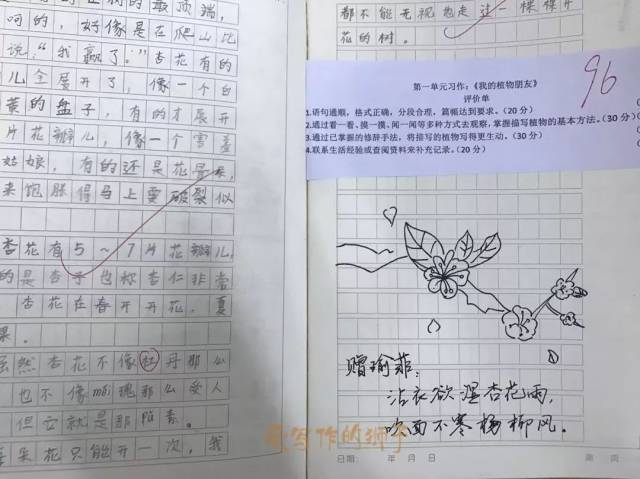 呵的，好像是在爬山比
说："我赢了。"杏花有的
儿全展开了，像一个白
黄的盘子，有的才展开
片花瓣儿，像一个害羞
姑娘，有的还是花骨朵，
来饱胀得马上要破裂似
杏花有5～7片花瓣儿，
的是杏子也称杏仁非常
杏花在春开开花，夏
果。
虽然杏花不像牡丹那么
也不像méi瑰那么受人
但它就是那陌素。
每朵花只能开一次，我
都不能无视地走过一棵棵开
花的树。
96
第一单元习作：《我的植物朋友》
评价单
1.语句通顺，格式正确，分段合理，篇幅达到要求。（20分）
2.通过看一看、摸一摸、闻一闻等多种方式去观察，掌握描写植物的基本方法。（30分）
3.通过已掌握的修辞手法，将描写的植物写得更生动。（30分）
4.联系生活经验或查阅资料来补充记录。（20分）
赠瑜菲：
沾衣欲湿杏花雨，
吹面不寒杨柳风。
日期： 年 月 日
爱写作的狮子